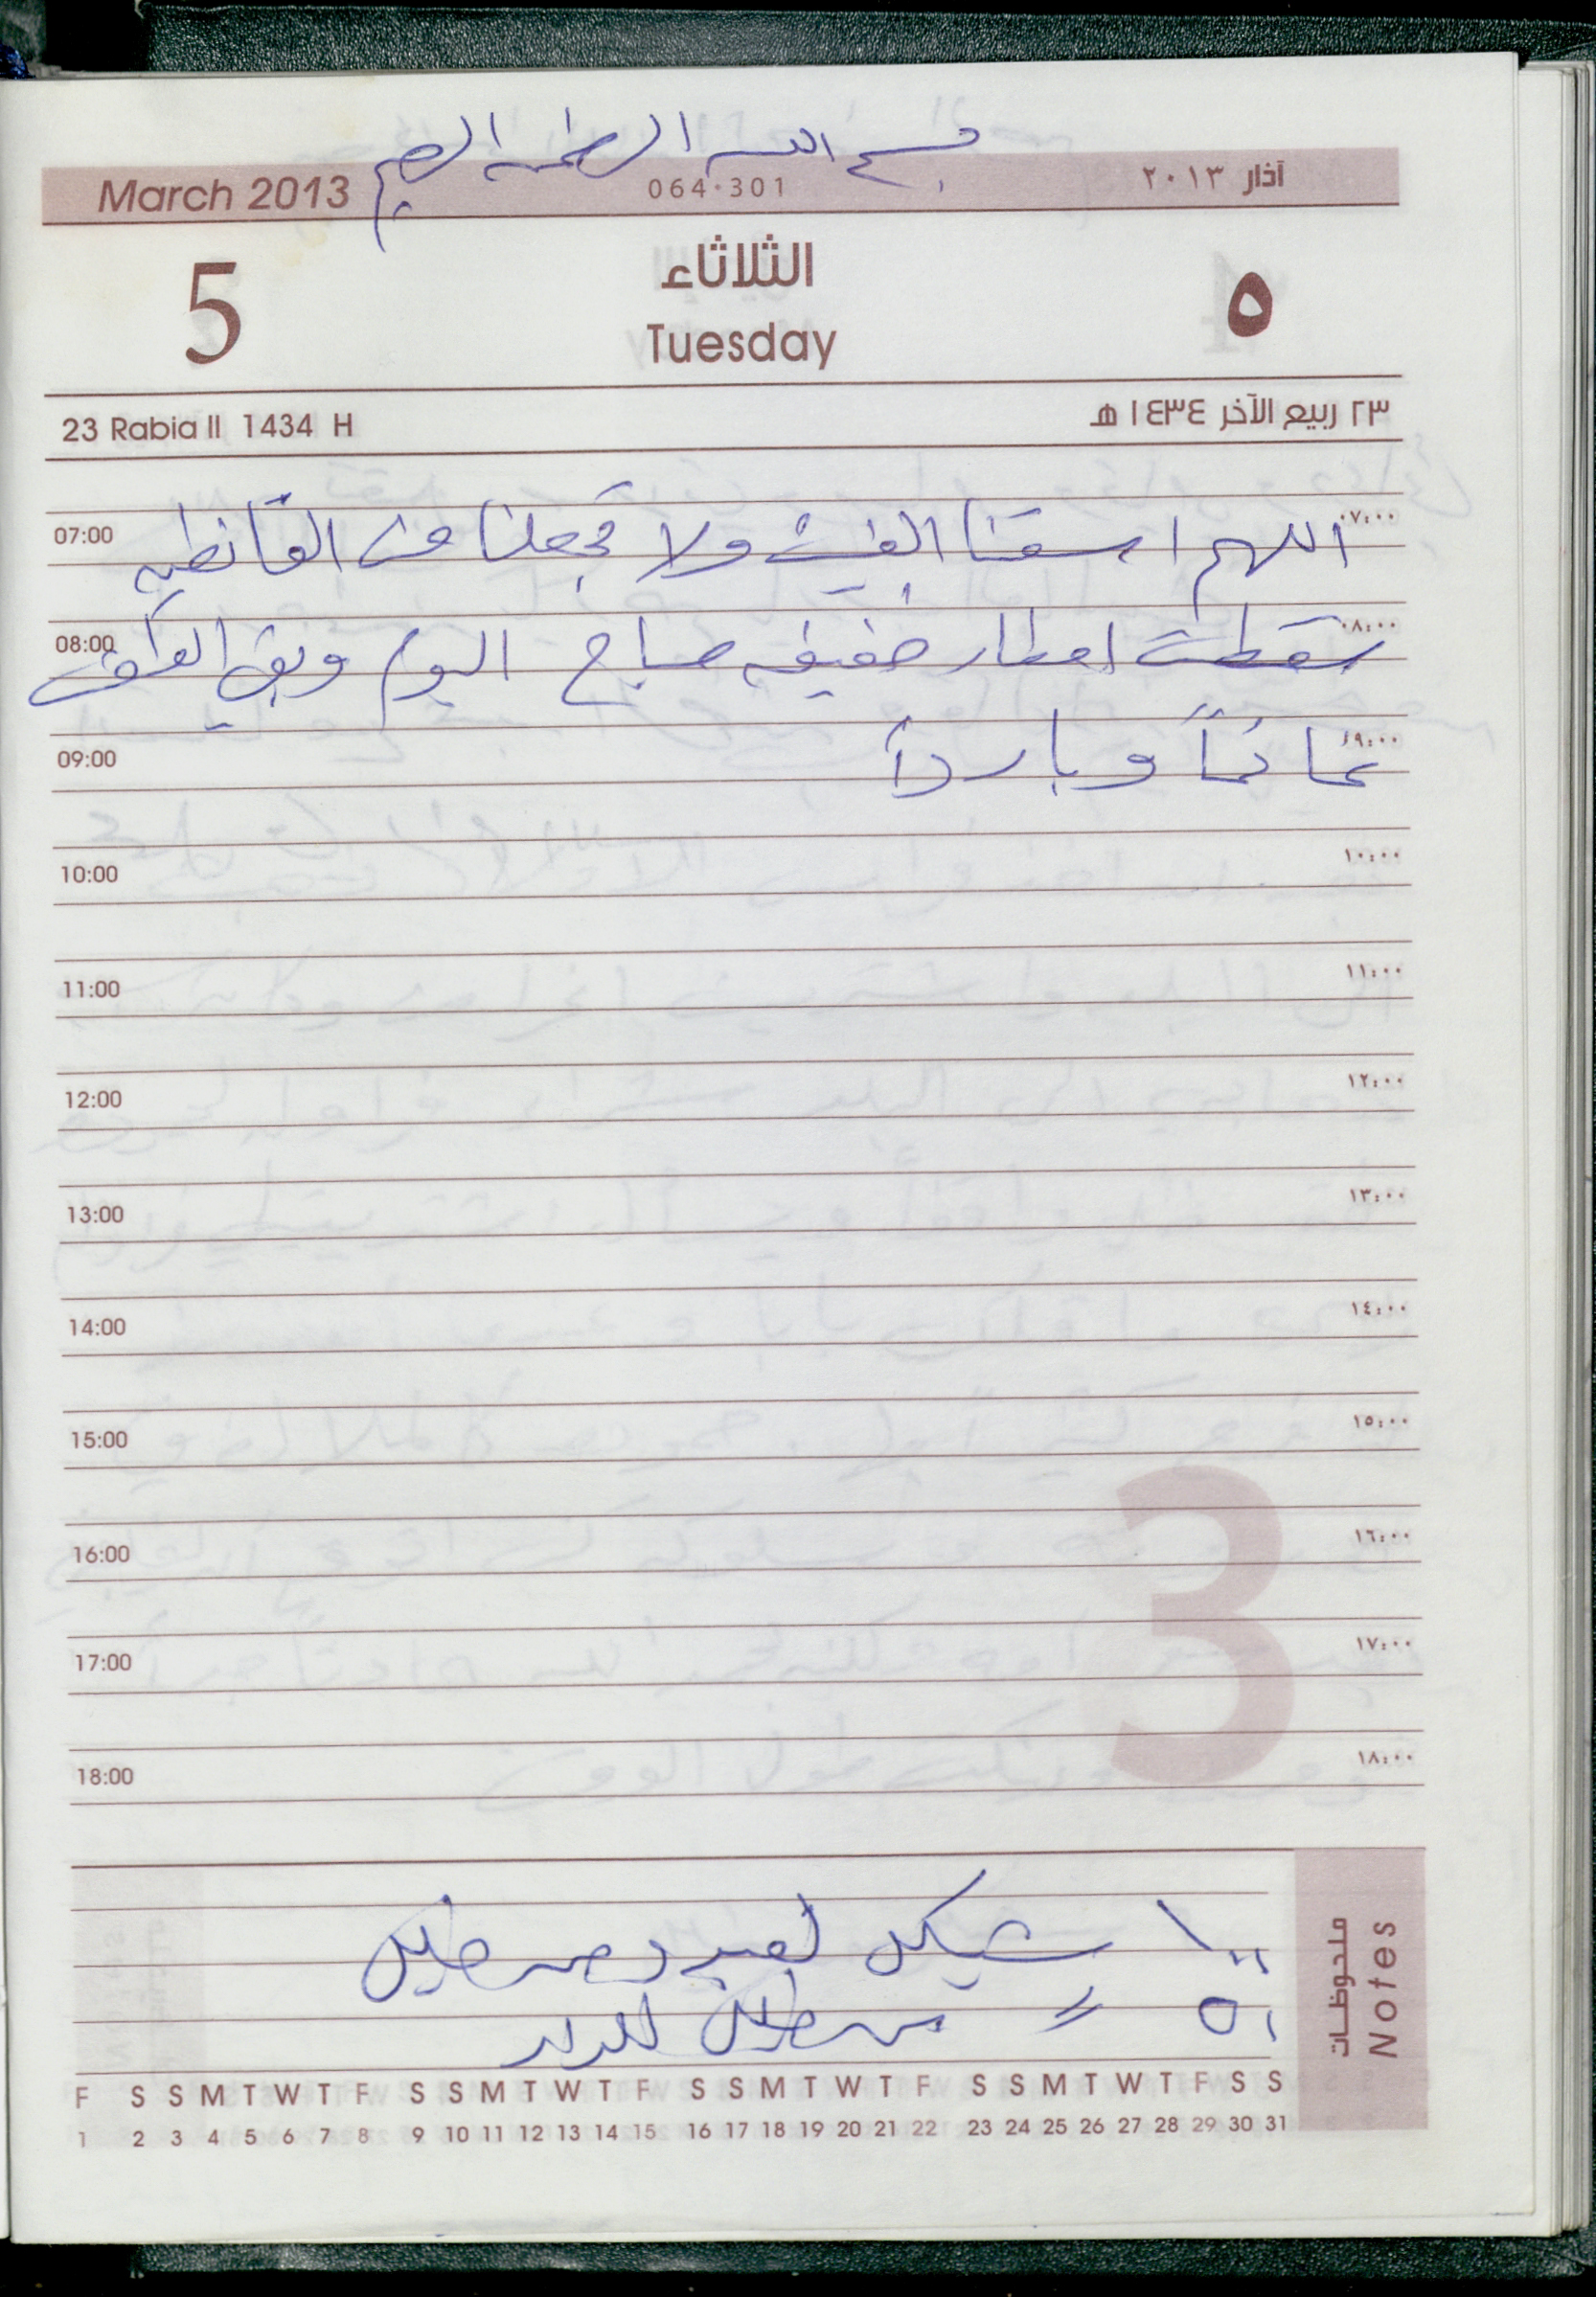 بسم الله الرحمن الرحيم
March 2013 064·301 آذار ٢٠١٣
5 الثلاثاء ٥
Tuesday
23 Rabia II 1434 H ٢٣ ربيع الآخر ١٤٣٤ هـ
07:00 اللهم اسقنا الغيث ولا تجعلنا من القانطين ٠٧:٠٠
08:00 سقطت امطار خفيفه صباح اليوم وبقي الطقس ٠٨:٠٠
09:00 غائماً وبارداً ٠٩:٠٠
10:00 ١٠:٠٠
11:00 ١١:٠٠
12:00 ١٢:٠٠
13:00 ١٣:٠٠
14:00 ١٤:٠٠
15:00 ١٥:٠٠
16:00 ١٦:٠٠
17:00 ١٧:٠٠
18:00 ١٨:٠٠
3
١٠٠ شيكل
٥٠ = للدار
ملحوظات
Notes
F S S M T W T F S S M T W T F S S M T W T F S S M T W T F S S
1 2 3 4 5 6 7 8 9 10 11 12 13 14 15 16 17 18 19 20 21 22 23 24 25 26 27 28 29 30 31